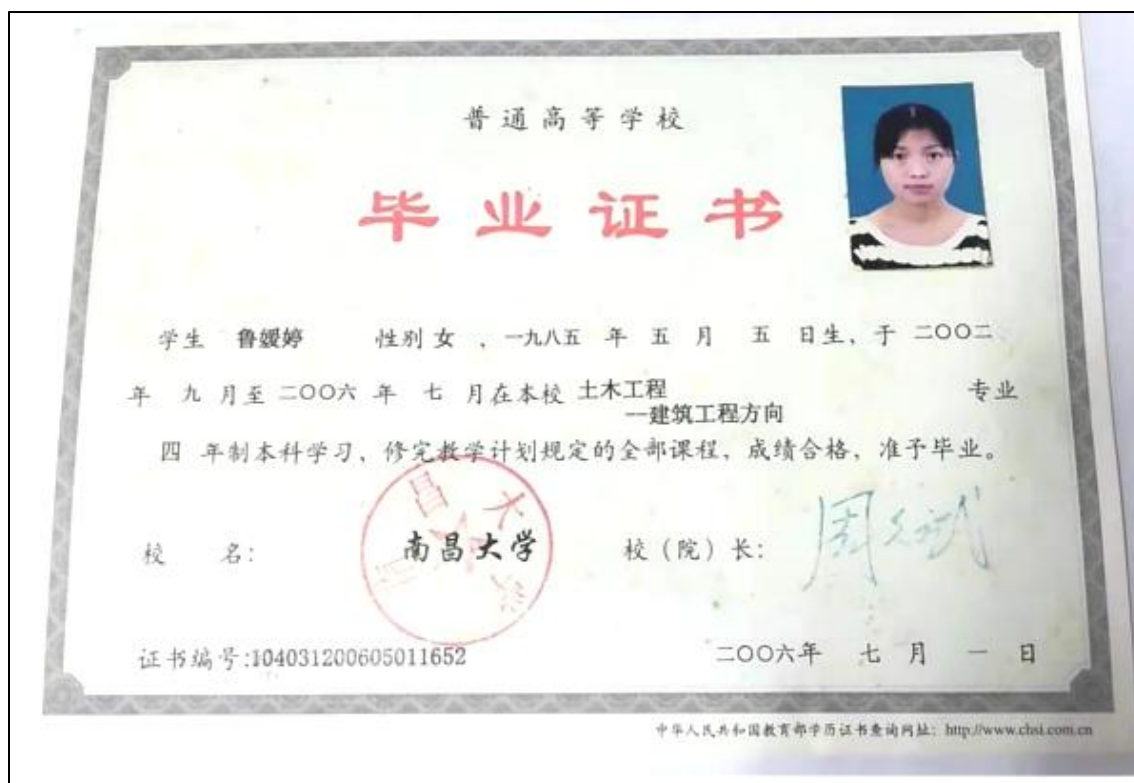 普通高等学校
毕业证书
学生 鲁媛婷 性别 女 、一九八五 年 五 月 五 日生、于 二〇〇二
年 九 月至 二〇〇六 年 七 月在本校 土木工程 专业
--建筑工程方向
四 年制本科学习、修完教学计划规定的全部课程，成绩合格，准予毕业。
校 名： 南昌大学 校（院）长：
证书编号:104031200605011652 二〇〇六年 七 月 一 日
中华人民共和国教育部学历证书查询网址：http://www.chsi.com.cn